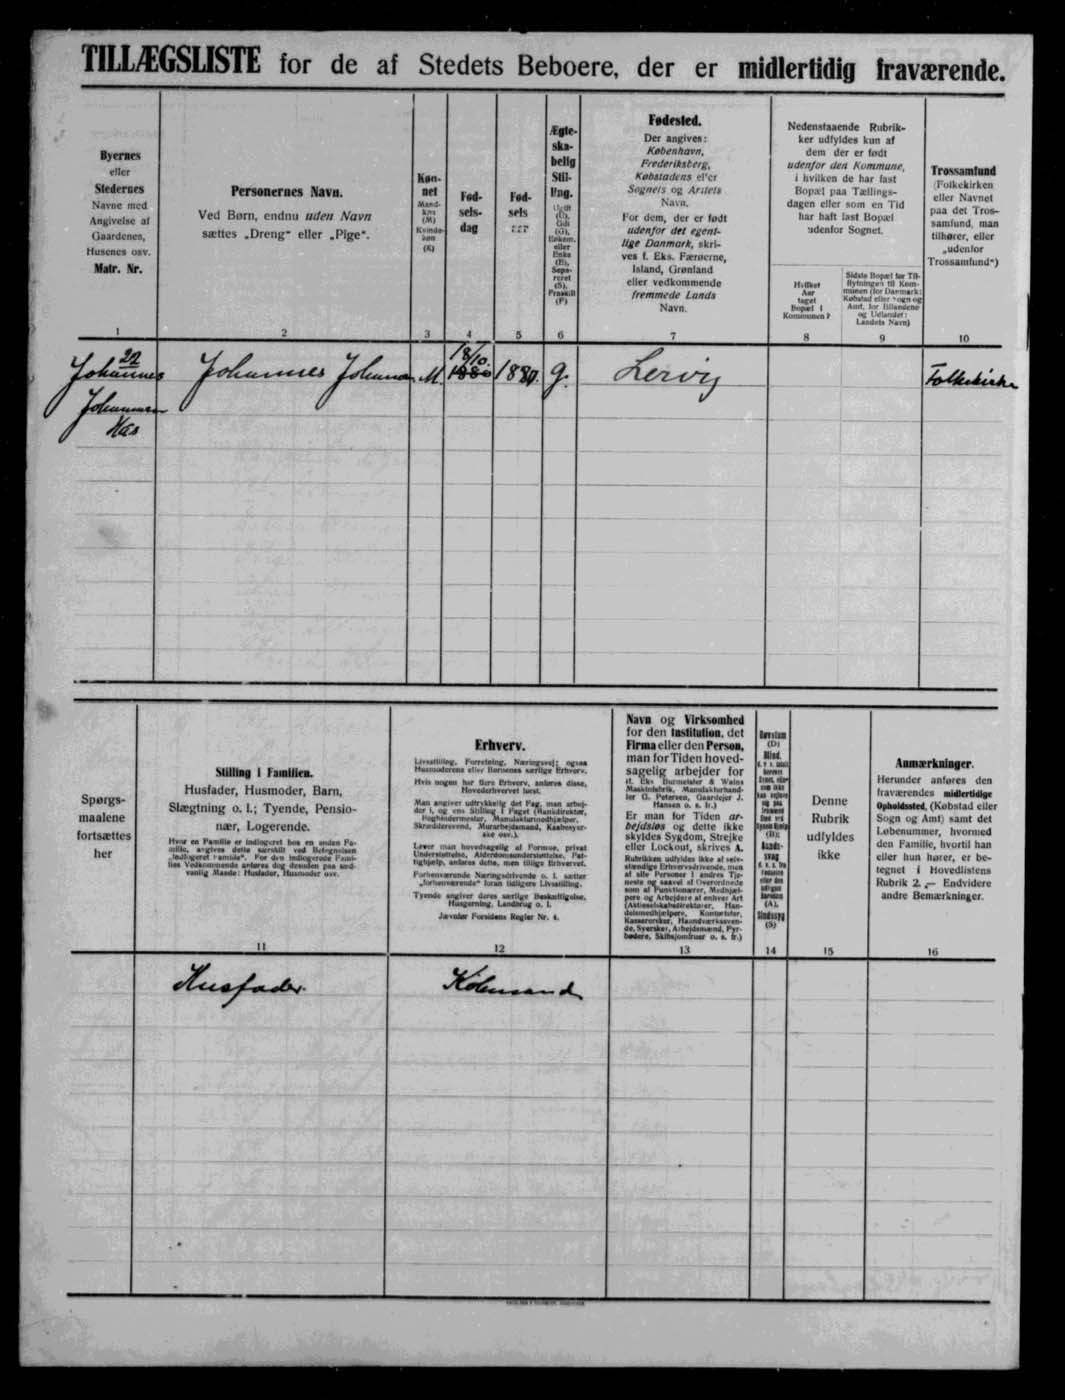 TILLÆGSLISTE for de af Stedets Beboere, der er midlertidig fraværende.
Byernes
eller
Stedernes
Navne med
Angivelse af
Gaardenes,
Husenes osv.
Matr. Nr.
1
Personernes Navn.
Ved Børn, endnu uden Navn
sættes „Dreng“ eller „Pige“.
2
Køn-
net
Mand-
køn
(M)
Kvinde-
køn
(K)
3
Fød-
sels-
dag
4
Fød-
sels
5
Ægte-
ska-
belig
Stil-
ling.
Ugift
(U),
Gift
(G),
Enkem.
eller
Enke
(E),
Sepa-
reret
(S),
Fraskilt
(F)
6
Fødested.
Der angives:
København,
Frederiksberg,
Købstadens eller
Sognets og Amtets
Navn.
For dem, der er født
udenfor det egent-
lige Danmark, skri-
ves f. Eks. Færøerne,
Island, Grønland
eller vedkommende
fremmede Lands
Navn.
7
Nedenstaaende Rubrik-
ker udfyldes kun af
dem der er født
udenfor den Kommune,
i hvilken de har fast
Bopæl paa Tællings-
dagen eller som en Tid
har haft fast Bopæl
udenfor Sognet.
Hvilket
Aar
taget
Bopæl i
Kommunen?
8
Sidste Bopæl før Til-
flytningen til Kom-
munen (for Danmark:
Købstad eller Sogn og
Amt, for Bilandene
og Udlandet:
Landets Navn)
9
Trossamfund
(Folkekirken
eller Navnet
paa det Tros-
samfund, man
tilhører, eller
„udenfor
Trossamfund“)
10
22
Johannes
Johannesen
Hus
Johannes
M.
18/10.
1880
G.
Lervig
Folkekirke
Spørgs-
maalene
fortsættes
her
Stilling i Familien.
Husfader, Husmoder, Barn,
Slægtning o. l.; Tyende, Pensio-
nær, Logerende.
Hvor en Familie er indlogeret hos en anden Fa-
milie, angives dette særskilt ved Betegnelsen
„Indlogeret Familie“. For den indlogerede Fami-
lies Vedkommende anføres dog desuden paa sed-
vanlig Maade: Husfader, Husmoder osv.
11
Erhverv.
Livsstilling, Forretning, Næringsvej; ogsaa
Husmoderens eller Børnenes særlige Erhverv.
Hvis nogen har flere Erhverv, anføres disse,
Hovederhvervet først.
Man angiver udtrykkelig det Fag, man arbej-
der i, og ens Stilling i Faget (Bankdirektør,
Bogbindermester, Manufakturmedhjælper,
Skræddersvend, Murarbejdsmand, Kasbesyer-
ske osv.).
Lever man hovedsagelig af Formue, privat
Understøttelse, Alderdomsunderstøttelse, Fat-
tighjælp, anføres dette, men tillige Erhvervet.
Forhenværende Næringsdrivende o. l. sætter
„forhenværende“ foran tidligere Livsstilling.
Tyende angiver deres særlige Beskæftigelse,
Husgerning, Landbrug o. l.
Jævnfør Forsidens Regler Nr. 4.
12
Navn og Virksomhed
for den Institution, det
Firma eller den Person,
man for Tiden hoved-
sagelig arbejder for
(f. Eks. Burmeister & Wains
Maskinfabrik, Manufakturhand-
ler G. Petersen, Gaardejer J.
Hansen o. s. fr.)
Er man for Tiden ar-
bejdsløs og dette ikke
skyldes Sygdom, Strejke
eller Lockout, skrives A.
Rubrikken udfyldes ikke af selv-
stændige Erhvervsdrivende, men
af alle Personer i andres Tje-
neste og saavel af Overordnede
som af Funktionærer, Medhjæl-
pere og Arbejdere af enhver Art
(Aktieselskabsdirektører, Han-
delsmedhjælpere, Kontorister,
Kassererske, Haandværkssven-
de, Syersker, Arbejdsmænd, Fyr-
bødere, Skibsjomfruer o. s. fr.)
13
Døvstum
(D)
Blind,
(B);
Aands-
svag
(A),
Sindssyg
(S)
14
Denne
Rubrik
udfyldes
ikke
15
Anmærkninger.
Herunder anføres den
fraværendes midlertidige
Opholdssted, (Købstad eller
Sogn og Amt) samt det
Løbenummer, hvormed
den Familie, hvortil han
eller hun hører, er be-
tegnet i Hovedlistens
Rubrik 2. — Endvidere
andre Bemærkninger.
16
Husfader.
Købmand